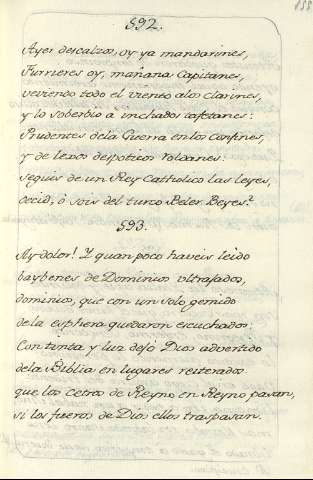 592.
Ayer descalzos, oy ya mandarines,
Furrieres oy, mañana Capitanes,
veviendo todo el viento alos clarines,
y lo soberbio à inchados tafetanes:
Prudentes dela Guerra en los confines,
y de lexos despoticos roldanes:
seguis de un Rey Catholico las leyes,
decid, ò sois del turco Beler Beyes?
593.
Ay dolor! Y quan poco haveis leido
baybenes de Dominios ultrajados,
dominios, que con un solo gemido
dela esphera quedaron escuchados:
Con tinta y luz dejó Dios advertido
dela Biblia en lugares reiterados
que los Cetros de Reyno en Reyno pasan,
si los fueros de Dios ellos traspasan.